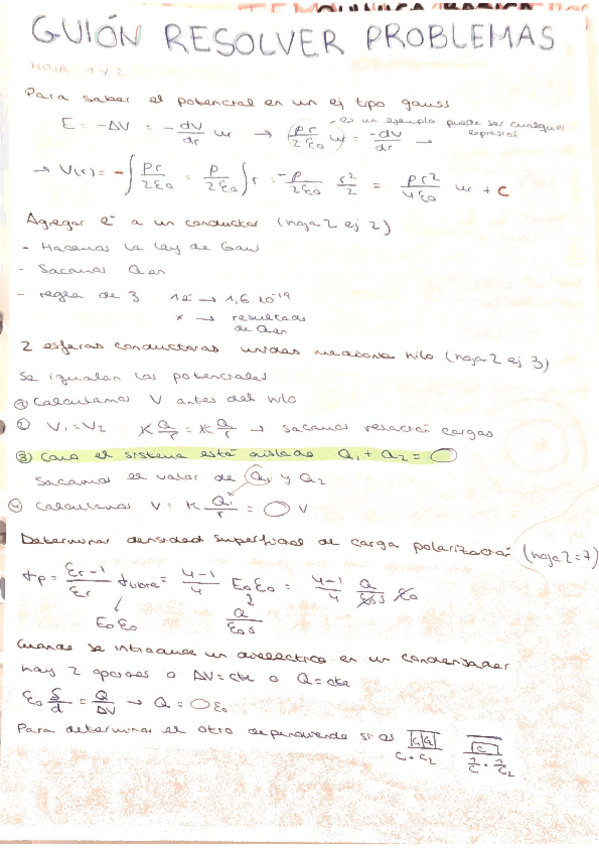 GUIÓN RESOLVER PROBLEMAS
HOJA 1 Y 2
Para saber el potencial en un ej tipo gauss
E = -ΔV = -dV/dr ur → (ρr/2ε0) = -dV/dr →
es un ejemplo puede ser cualquier expresión
→ V(r) = -∫ρr/2ε0 = ρ/2ε0 ∫r = -ρ/2ε0 r²/2 = ρr²/4ε0 ur + C
Agregar e⁻ a un conductor (hoja 2 ej 2)
- Hacemos la ley de Gauss
- Sacamos Q
- regla de 3 1e⁻ → 1,6·10⁻¹⁹
x → resultado
de Q
2 esferas conductoras unidas mediante hilo (hoja 2 ej 3)
Se igualan los potenciales
① Calculamos V antes del hilo
② V1 = V2 K Q/r = K Q/r → sacamos relación cargas
③ Como el sistema está aislado Q1 + Q2 = ◯
Sacamos el valor de Q1 y Q2
④ Calculamos V = K Q1/r = ◯ V
Determinar densidad superficial de carga polarización (hoja 2 = 7)
σp = εr-1/εr σlibre = 4-1/4 E0ε0 = 4-1/4 Q/ε0s ε0
E0ε0 Q/ε0s
Cuando se introduce un dieléctrico en un condensador
hay 2 opciones o ΔV = cte o Q = cte
ε0 S/d = Q/ΔV → Q = ◯ ε0
Para determinar el otro dependiendo si es C1 C2 C
C1 + C2 1/C + 1/C2